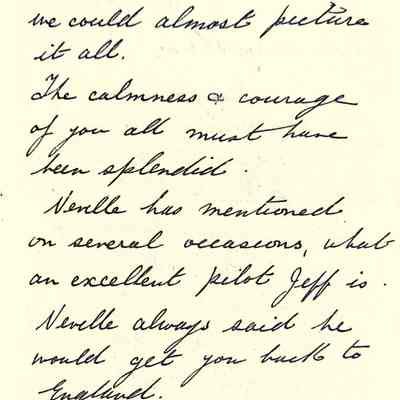 we could almost picture
it all.
The calmness & courage
of you all must have
been splendid.
Neville has mentioned
on several occasions, what
an excellent pilot Jeff is.
Neville always said he
would get you back to
England.